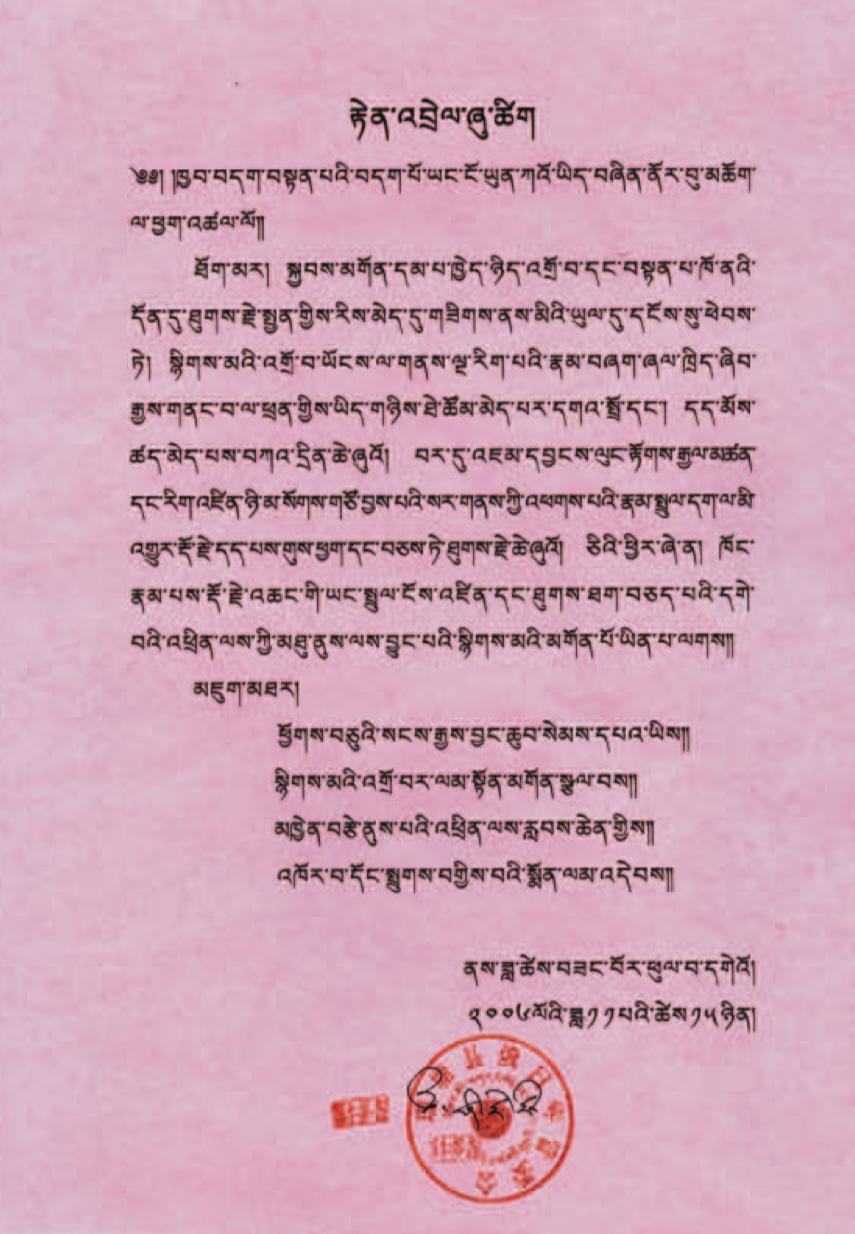 རྟེན་འབྲེལ་ཞུ་ཚིག
༄༅། །ཁྱབ་བདག་བསྟན་པའི་བདག་པོ་ཡང་ངོ་ཡུན་ཀའོ་ཡིད་བཞིན་ནོར་བུ་མཆོག་
ལ་ཕྱག་འཚལ་ལོ།།
ཐོག་མར། སྐྱབས་མགོན་དམ་པ་ཁྱེད་ཉིད་འགྲོ་བ་དང་བསྟན་པ་ཁོ་ནའི་
དོན་དུ་ཐུགས་རྗེ་སྤྱན་གྱིས་རིས་མེད་དུ་གཟིགས་ནས་མིའི་ཡུལ་དུ་དངོས་སུ་ཕེབས་
ཏེ། སྙིགས་མའི་འགྲོ་བ་ཡོངས་ལ་གནས་ལྔ་རིག་པའི་རྣམ་བཞག་ཞལ་ཁྲིད་ཞིབ་
རྒྱས་གནང་བ་ལ་ཕྲན་གྱིས་ཡིད་གཉིས་ཐེ་ཚོམ་མེད་པར་དགའ་སྤྲོ་དང་། དད་མོས་
ཚད་མེད་པས་བཀའ་དྲིན་ཆེ་ཞུའོ། བར་དུ་འཇམ་དབྱངས་ལུང་རྟོགས་རྒྱལ་མཚན་
དང་རིག་འཛིན་ཉི་མ་སོགས་གཙོ་བྱས་པའི་སར་གནས་ཀྱི་འཕགས་པའི་རྣམ་སྤྲུལ་དག་ལ་མི་
འགྱུར་རྡོ་རྗེ་དད་པས་གུས་ཕྱག་དང་བཅས་ཏེ་ཐུགས་རྗེ་ཆེ་ཞུའོ། ཅིའི་ཕྱིར་ཞེ་ན། ཁོང་
རྣམ་པས་རྡོ་རྗེ་འཆང་གི་ཡང་སྤྲུལ་ངོས་འཛིན་དང་ཐུགས་ཐག་བཅད་པའི་དགེ་
བའི་འཕྲིན་ལས་ཀྱི་མཐུ་ནུས་ལས་བྱུང་པའི་སྙིགས་མའི་མགོན་པོ་ཡིན་པ་ལགས།།
མཇུག་མཐར།
ཕྱོགས་བཅུའི་སངས་རྒྱས་བྱང་ཆུབ་སེམས་དཔའ་ཡིས།།
སྙིགས་མའི་འགྲོ་བར་ལམ་སྟོན་མགོན་སྩལ་བས།།
མཁྱེན་བརྩེ་ནུས་པའི་འཕྲིན་ལས་རླབས་ཆེན་གྱིས།།
འཁོར་བ་དོང་སྤྲུགས་བགྱིས་བའི་སྨོན་ལམ་འདེབས།།
ནས་ཟླ་ཚེས་བཟང་པོར་ཕུལ་བ་དགེའོ།
༢༠༠༦ལོའི་ཟླ་༡༡པའི་ཚེས་༡༥ཉིན།